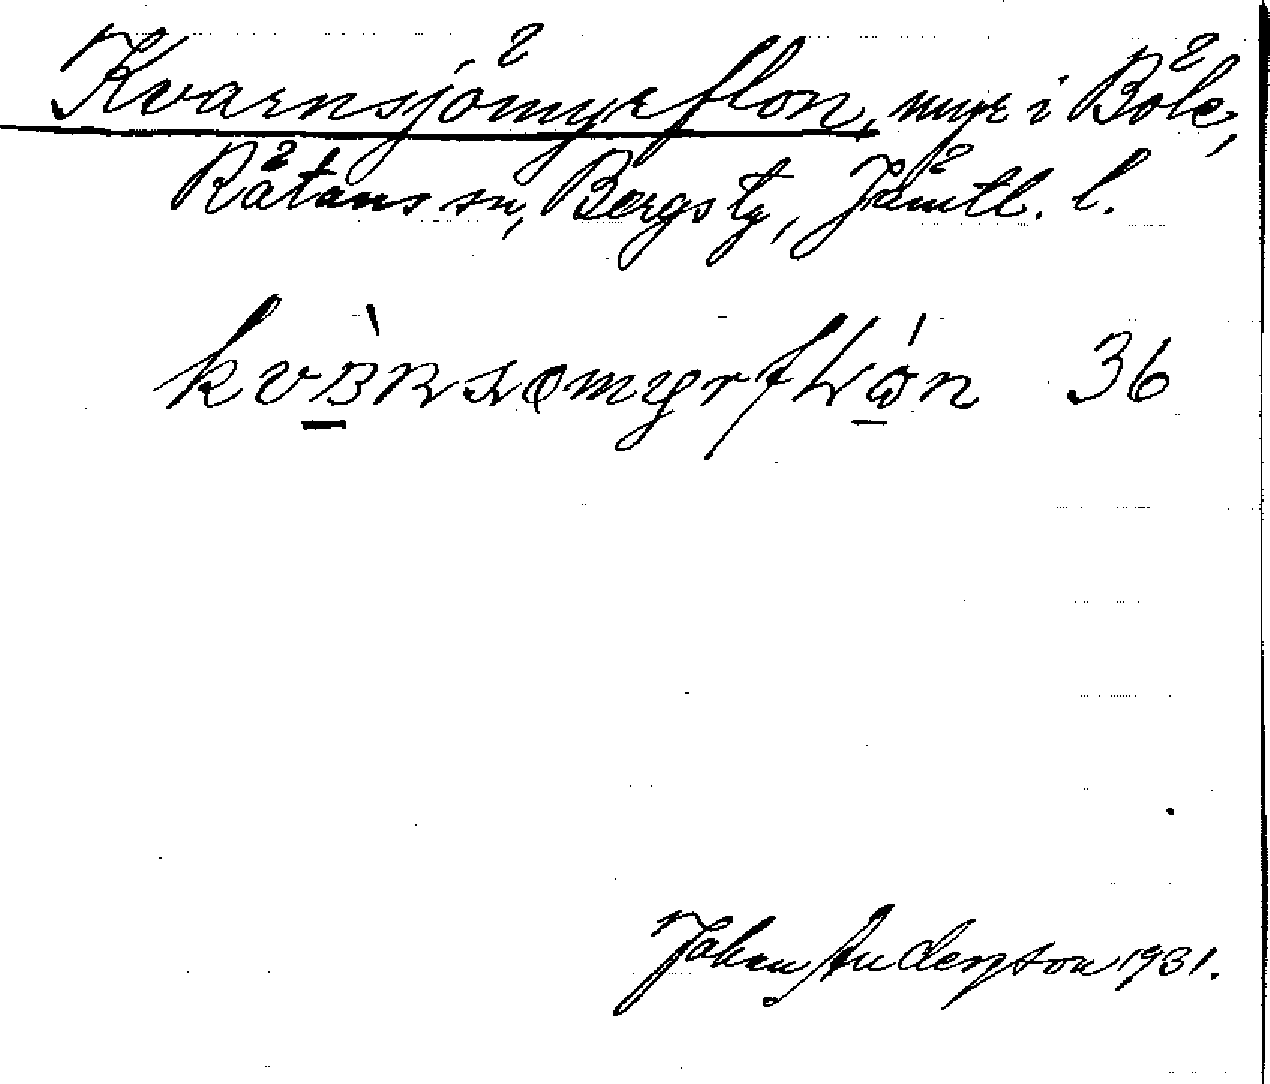 Kvarnsjömyrflon, myr i Böle,
Råtans sn, Bergs tg, Jämtl. l.
36
Johan Anderson 1931.